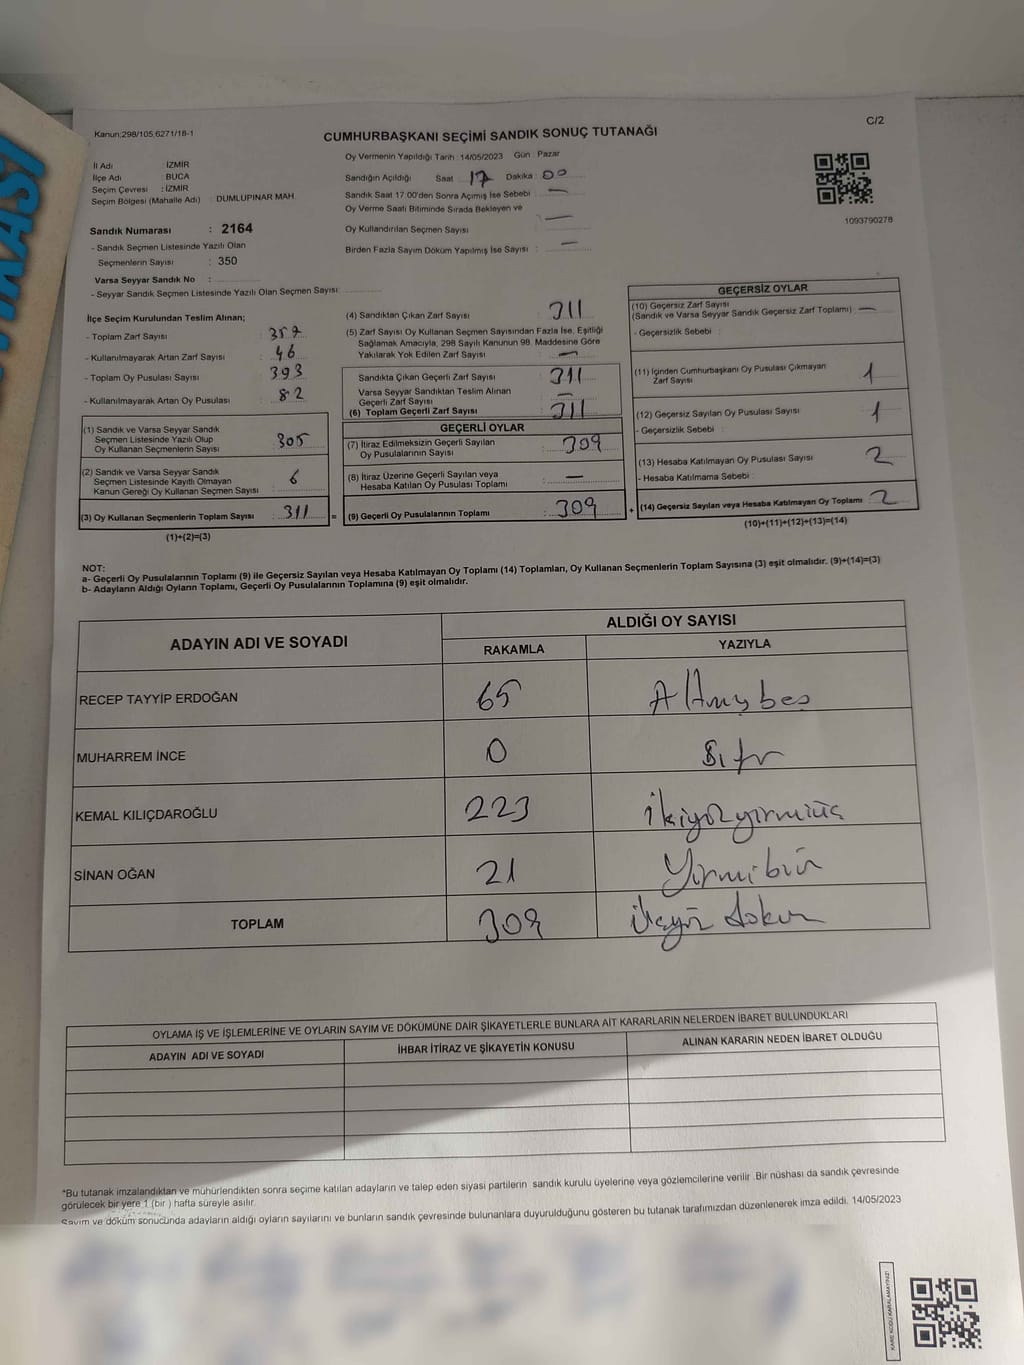 Kanun:298/105,6271/18-1
CUMHURBAŞKANI SEÇİMİ SANDIK SONUÇ TUTANAĞI
C/2
İl Adı : İZMİR
İlçe Adı : BUCA
Seçim Çevresi : İZMİR
Seçim Bölgesi (Mahalle Adı) : DUMLUPINAR MAH.
Oy Vermenin Yapıldığı Tarih : 14/05/2023 Gün : Pazar
Sandığın Açıldığı Saat : 17 Dakika : 00
Sandık Saat 17:00'den Sonra Açımış İse Sebebi : —
Oy Verme Saati Bitiminde Sırada Bekleyen ve
Oy Kullandırılan Seçmen Sayısı : —
Birden Fazla Sayım Döküm Yapılmış İse Sayısı : —
1093790278
Sandık Numarası : 2164
- Sandık Seçmen Listesinde Yazılı Olan
Seçmenlerin Sayısı : 350
Varsa Seyyar Sandık No :
- Seyyar Sandık Seçmen Listesinde Yazılı Olan Seçmen Sayısı:
İlçe Seçim Kurulundan Teslim Alınan;
- Toplam Zarf Sayısı :
- Kullanılmayarak Artan Zarf Sayısı : 46
- Toplam Oy Pusulası Sayısı : 393
- Kullanılmayarak Artan Oy Pusulası : 82
(1) Sandık ve Varsa Seyyar Sandık
Seçmen Listesinde Yazılı Olup
Oy Kullanan Seçmenlerin Sayısı : 305
(2) Sandık ve Varsa Seyyar Sandık
Seçmen Listesinde Kayıtlı Olmayan
Kanun Gereği Oy Kullanan Seçmen Sayısı : 6
(3) Oy Kullanan Seçmenlerin Toplam Sayısı : 311 =
(1)+(2)=(3)
(4) Sandıktan Çıkan Zarf Sayısı : 311
(5) Zarf Sayısı Oy Kullanan Seçmen Sayısından Fazla İse, Eşitliği
Sağlamak Amacıyla, 298 Sayılı Kanunun 98. Maddesine Göre
Yakılarak Yok Edilen Zarf Sayısı : —
Sandıkta Çıkan Geçerli Zarf Sayısı : 311
Varsa Seyyar Sandıktan Teslim Alınan
Geçerli Zarf Sayısı : —
(6) Toplam Geçerli Zarf Sayısı : 311
GEÇERLİ OYLAR
(7) İtiraz Edilmeksizin Geçerli Sayılan
Oy Pusulalarının Sayısı : 309
(8) İtiraz Üzerine Geçerli Sayılan veya
Hesaba Katılan Oy Pusulası Toplamı : —
(9) Geçerli Oy Pusulalarının Toplamı : 309 +
GEÇERSİZ OYLAR
(10) Geçersiz Zarf Sayısı
(Sandık ve Varsa Seyyar Sandık Geçersiz Zarf Toplamı) : —
- Geçersizlik Sebebi :
(11) İçinden Cumhurbaşkanı Oy Pusulası Çıkmayan
Zarf Sayısı : 1
(12) Geçersiz Sayılan Oy Pusulası Sayısı : 1
- Geçersizlik Sebebi :
(13) Hesaba Katılmayan Oy Pusulası Sayısı : 2
- Hesaba Katılmama Sebebi :
(14) Geçersiz Sayılan veya Hesaba Katılmayan Oy Toplamı : 2
(10)+(11)+(12)+(13)=(14)
NOT:
a- Geçerli Oy Pusulalarının Toplamı (9) ile Geçersiz Sayılan veya Hesaba Katılmayan Oy Toplamı (14) Toplamları, Oy Kullanan Seçmenlerin Toplam Sayısına (3) eşit olmalıdır. (9)+(14)=(3)
b- Adayların Aldığı Oyların Toplamı, Geçerli Oy Pusulalarının Toplamına (9) eşit olmalıdır.
ADAYIN ADI VE SOYADI
ALDIĞI OY SAYISI
RAKAMLA YAZIYLA
RECEP TAYYİP ERDOĞAN 65 Altmışbeş
MUHARREM İNCE 0 Sıfır
KEMAL KILIÇDAROĞLU 223 ikiyüzyirmiüç
SİNAN OĞAN 21 Yirmibir
TOPLAM 309 üçyüz dokuz
OYLAMA İŞ VE İŞLEMLERİNE VE OYLARIN SAYIM VE DÖKÜMÜNE DAİR ŞİKAYETLERLE BUNLARA AİT KARARLARIN NELERDEN İBARET BULUNDUKLARI
ADAYIN ADI VE SOYADI İHBAR İTİRAZ VE ŞİKAYETİN KONUSU ALINAN KARARIN NEDEN İBARET OLDUĞU
*Bu tutanak imzalandıktan ve mühürlendikten sonra seçime katılan adayların ve talep eden siyasi partilerin sandık kurulu üyelerine veya gözlemcilerine verilir .Bir nüshası da sandık çevresinde
görülecek bir yere 1 (bir ) hafta süreyle asılır.
Sayım ve döküm sonucunda adayların aldığı oyların sayılarını ve bunların sandık çevresinde bulunanlara duyurulduğunu gösteren bu tutanak tarafımızdan düzenlenerek imza edildi. 14/05/2023
KARE KODU KARALAMAYINIZ!